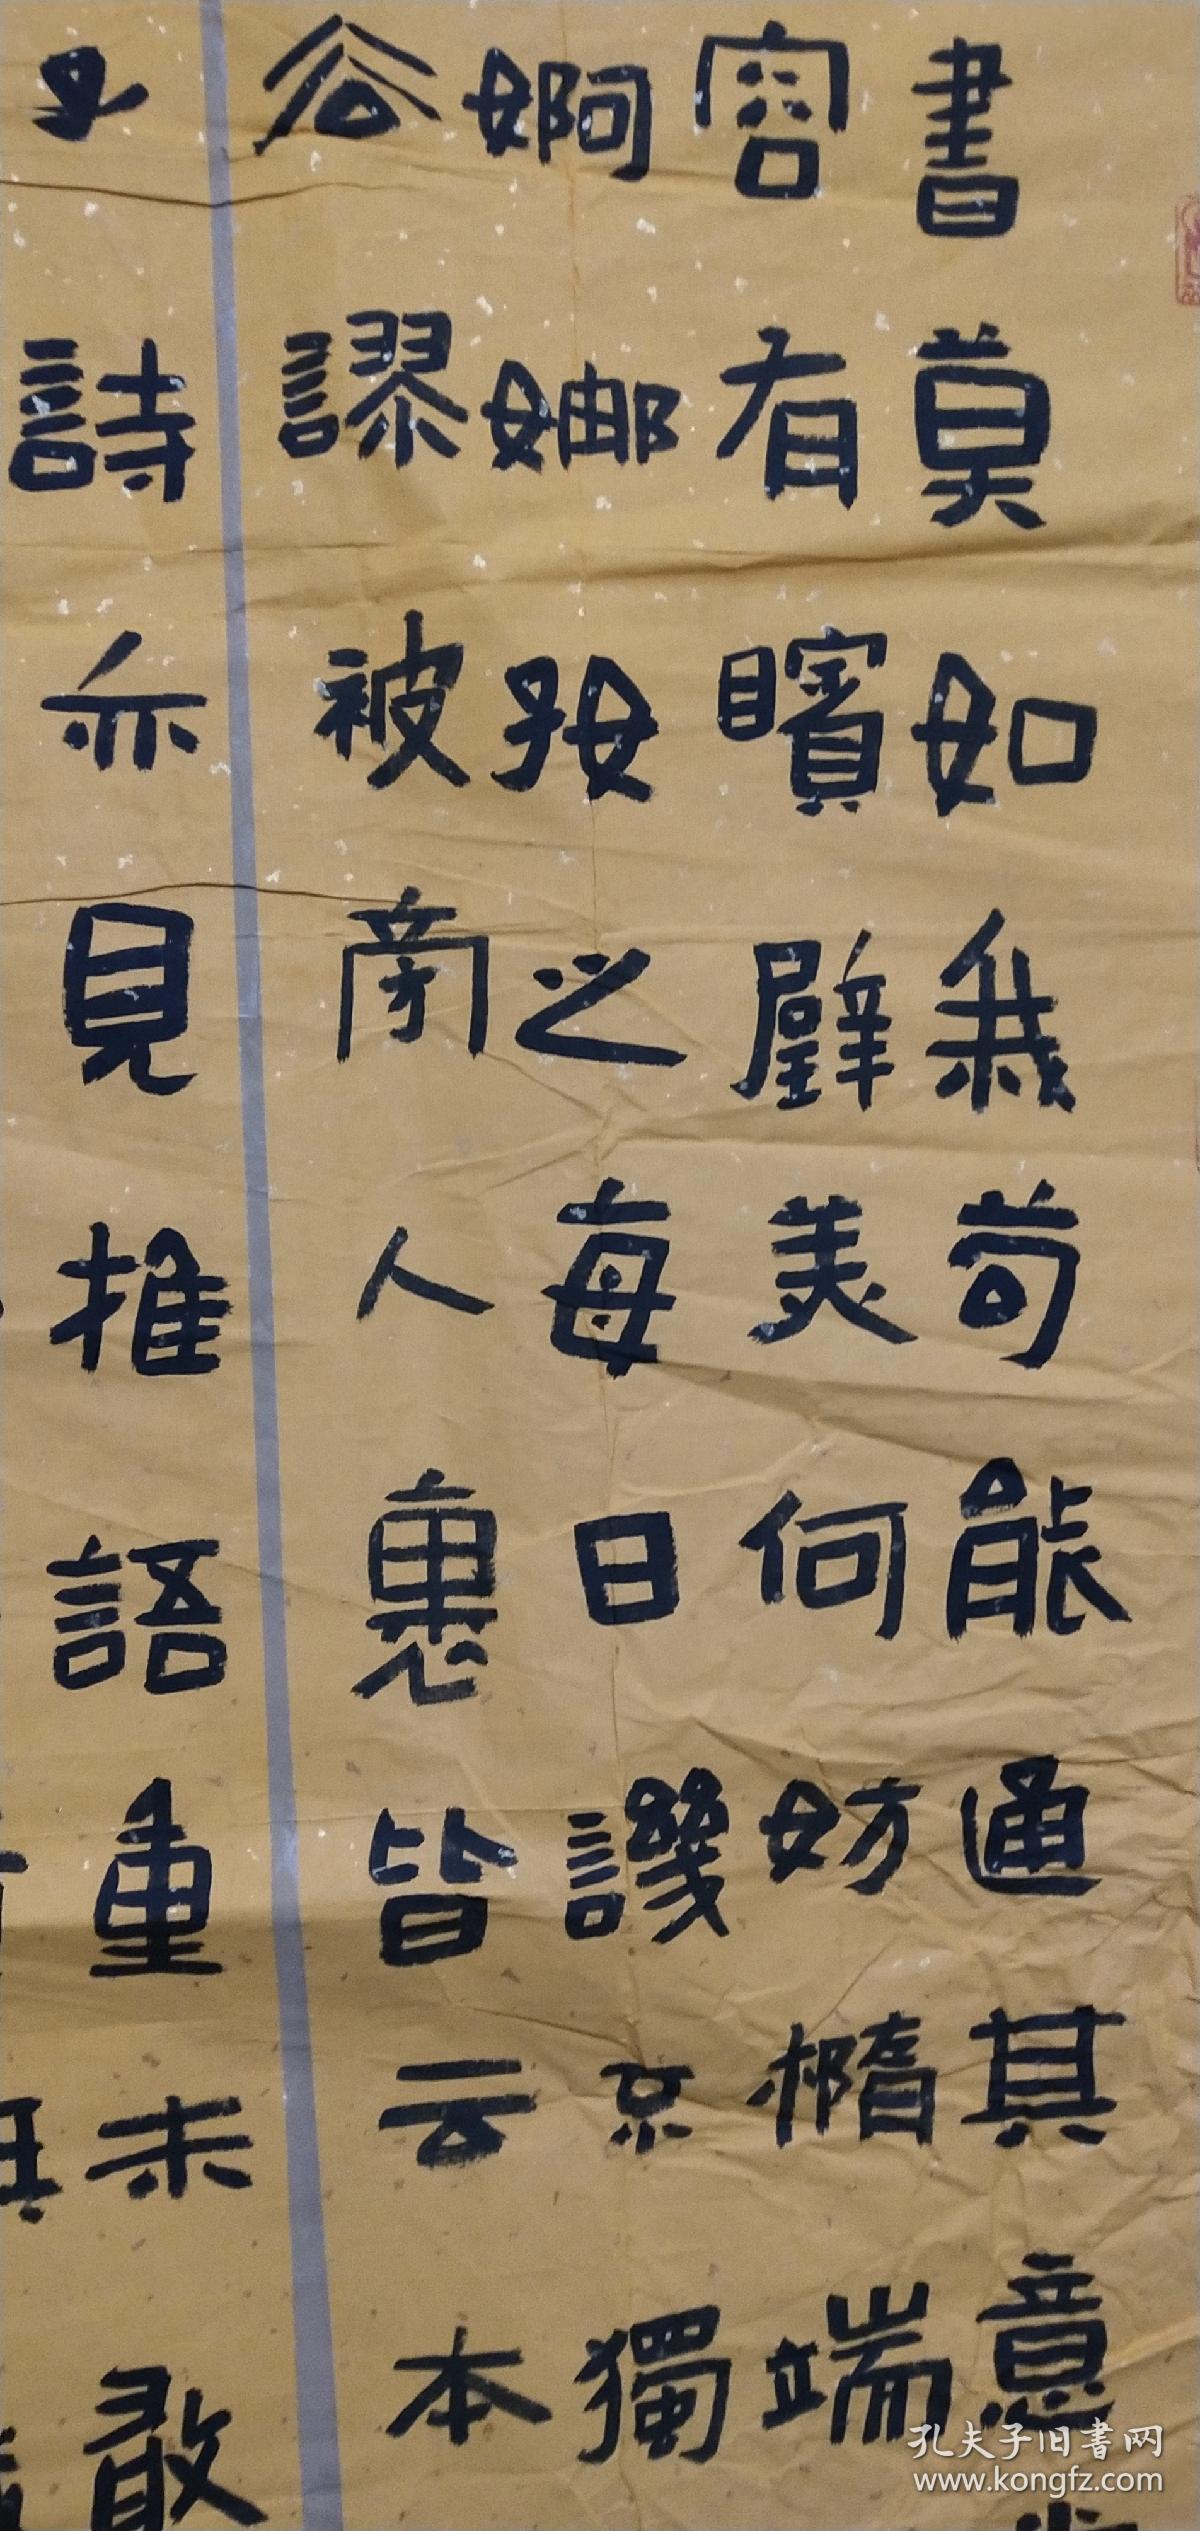 書莫如我苟能通其意
容有矉璧美何妨橢端
婀娜好之每日譏不獨
去謬被旁人裹皆云本
子詩亦見推語重未敢
孔夫子旧书网
www.kongfz.com